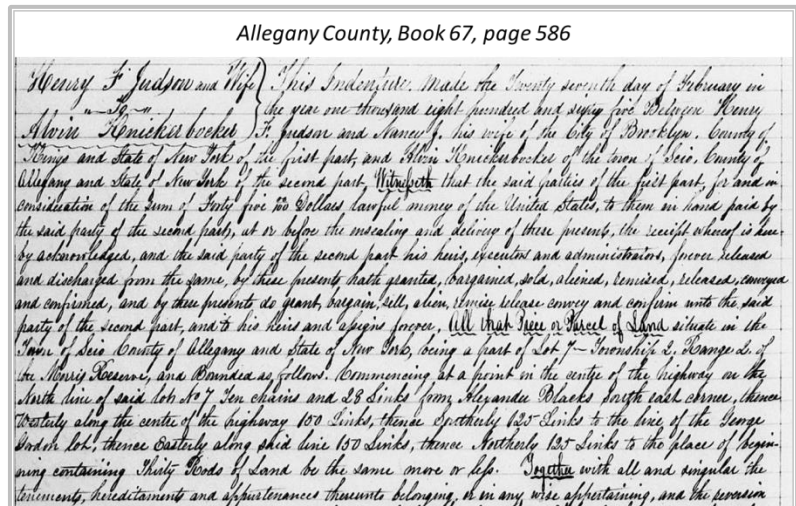 Allegany County, Book 67, page 586
Henry F Judson and Wife } This Indenture, Made the Twenty seventh day of February in
" To " the year one thousand eight hundred and sixty five Between Henry
Alvin Knickerbocker F. Judson and Nancy J. his wife of the City of Brooklyn, County of
Kings and State of New York of the first part, and Alvin Knickerbocker of the town of Scio, County of
Allegany and State of New York of the second part, Witnesseth that the said parties of the first part, for and in
consideration of the sum of Forty five Dollars lawful money of the United States, to them in hand paid by
the said party of the second part, at or before the ensealing and delivery of these presents, the receipt whereof is here-
by acknowledged, and the said party of the second part his heirs, executors and administrators, forever released
and discharged from the same, by these presents hath granted, bargained, sold, aliened, remised, released, conveyed
and confirmed, and by these presents do grant, bargain, sell, alien, remise release convey and confirm unto the said
party of the second part, and to his heirs and assigns forever, All that Piece or Parcel of Land situate in the
Town of Scio County of Allegany and State of New York, being a part of Lot 7 - Township 2, Range 2. of
the Morris Reserve, and Bounded as follows. Commencing at a point in the centre of the highway on the
North line of said lot No 7 Ten chains and 28 Links from Alexander Blacks south east corner, thence
Westerly along the centre of the highway 150 Links, thence Southerly 125 Links to the line of the George
Gordon lot, thence Easterly along said line 150 Links, thence Northerly 125 Links to the place of begin-
ning containing Thirty Rods of Land be the same more or less. Together with all and singular the
tenements, hereditaments and appurtenances thereunto belonging, or in any wise appertaining, and the reversion